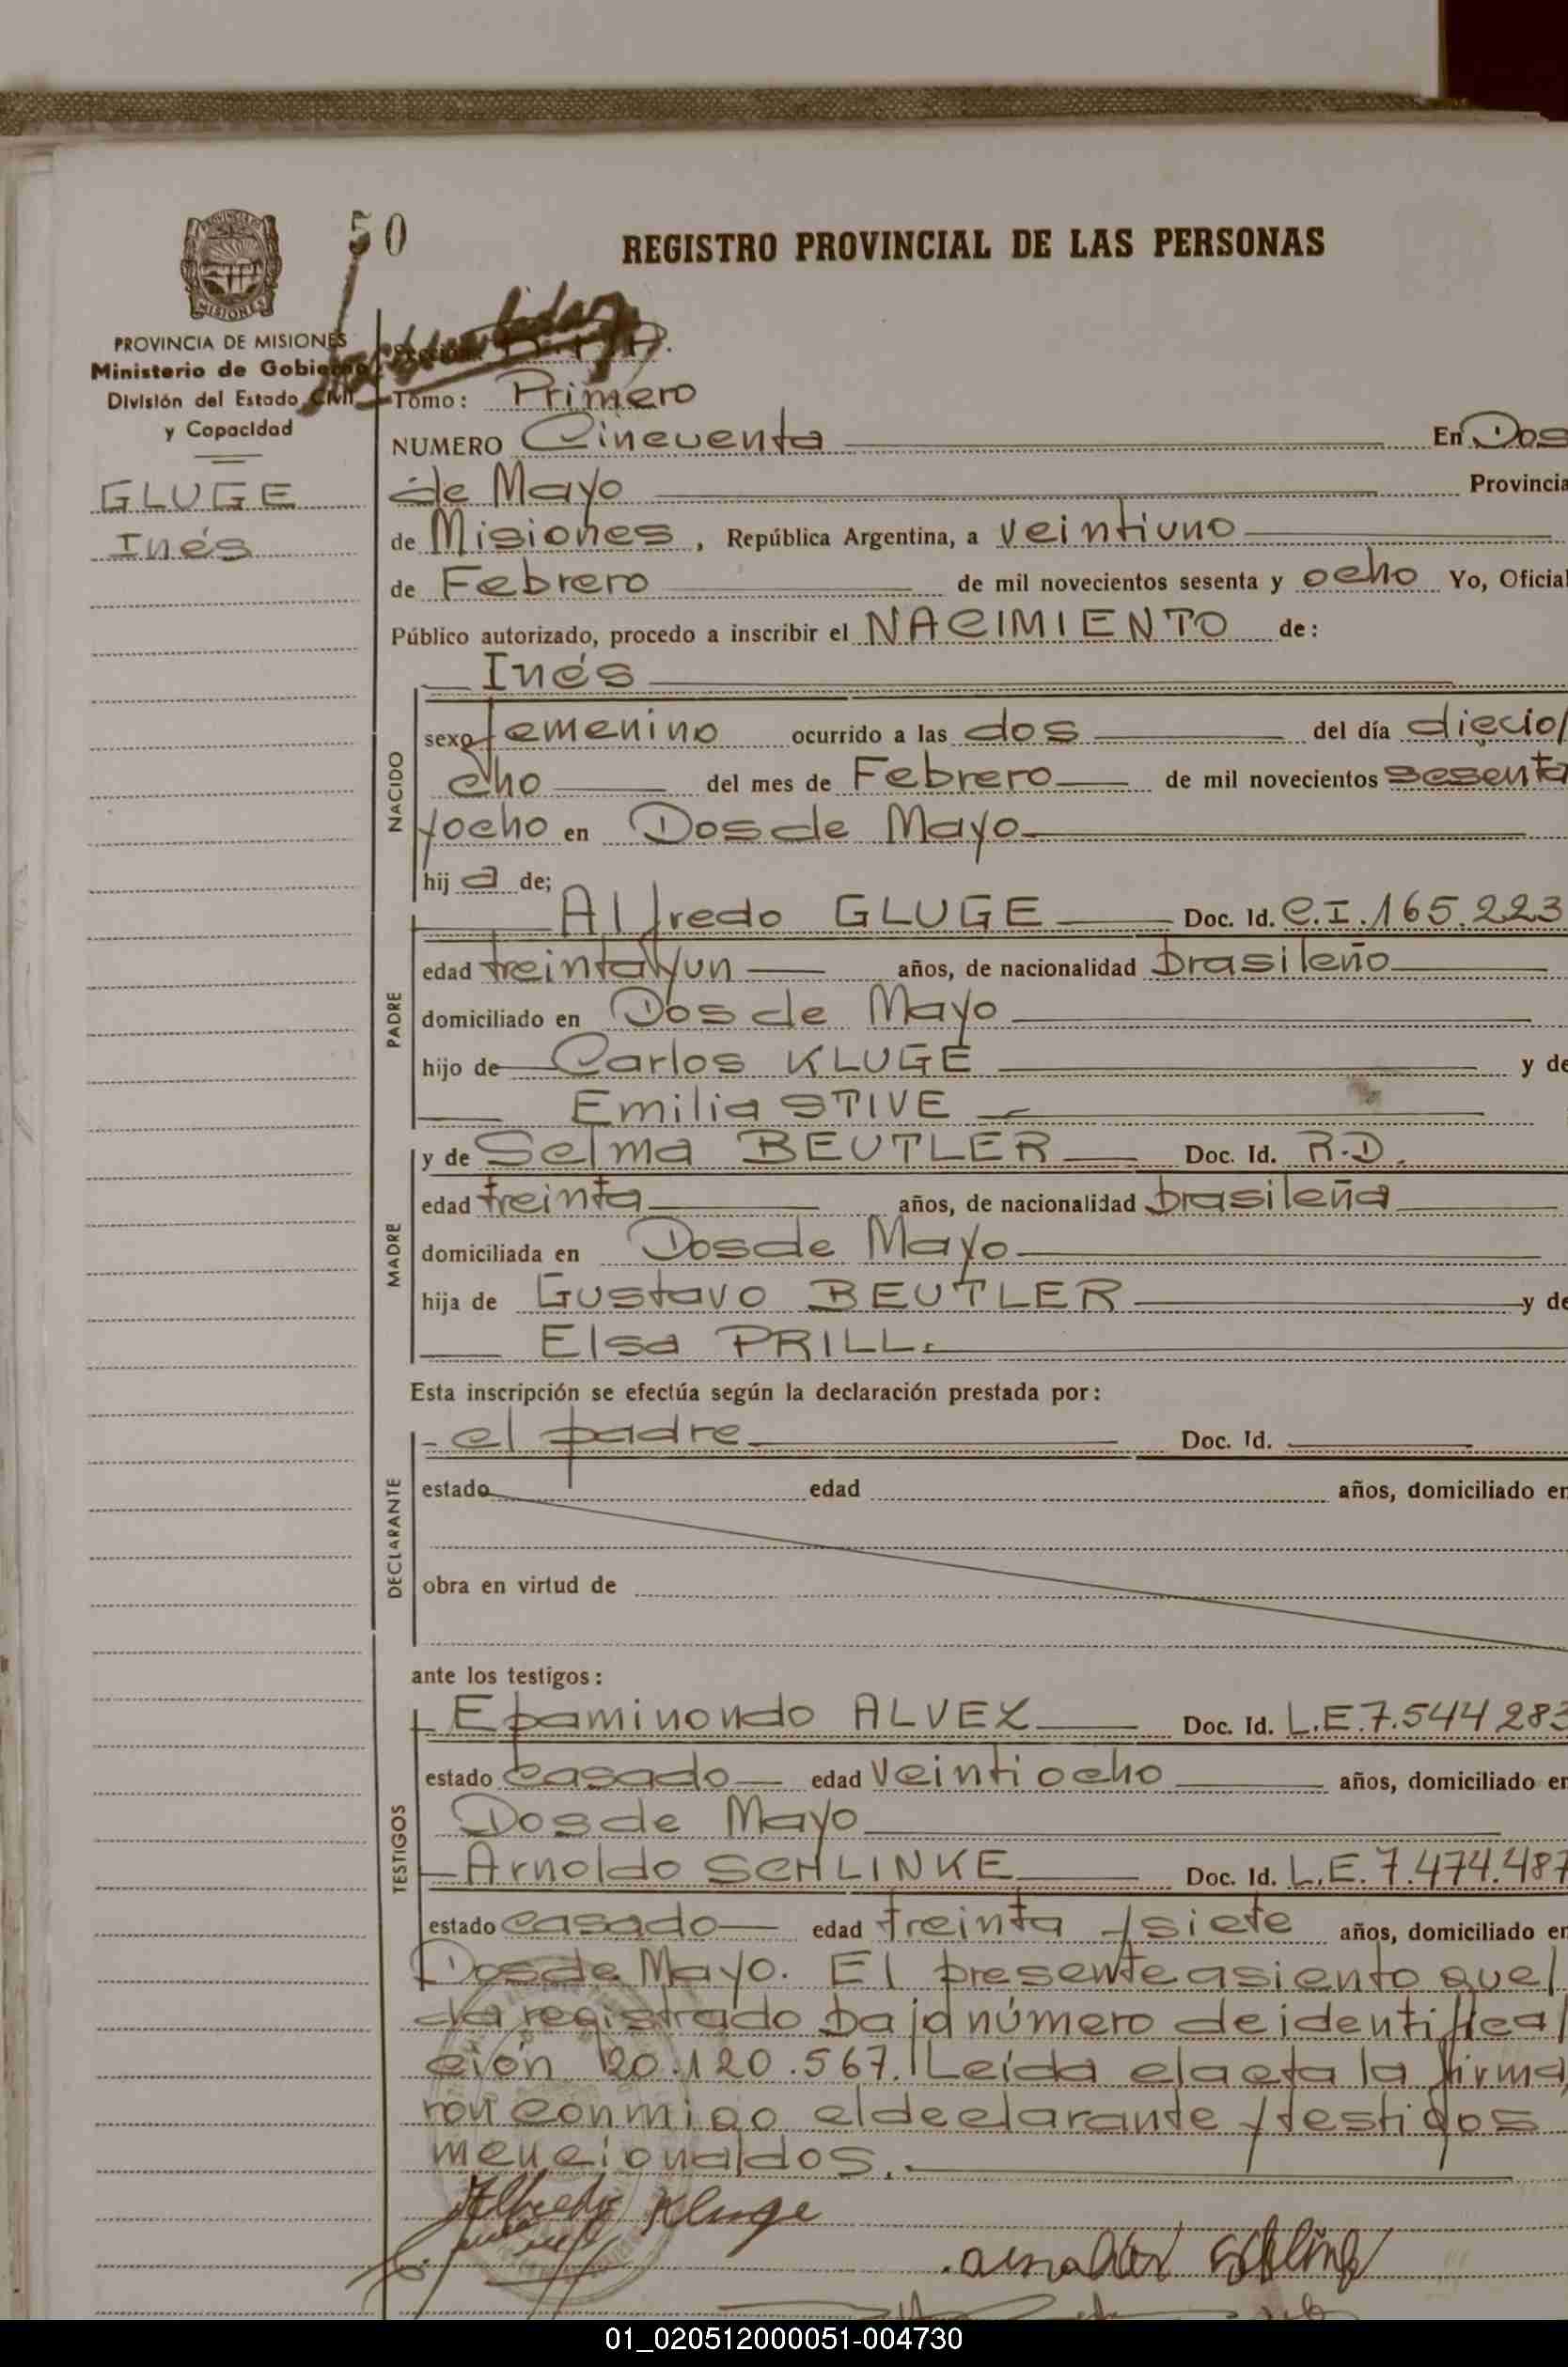 50
REGISTRO PROVINCIAL DE LAS PERSONAS
MISIONES
PROVINCIA DE MISIONES
Ministerio de Gobierno
División del Estado Civil
y Capacidad
GLUGE
Inés
Tomo: Primero
NUMERO Cincuenta En Dos
de Mayo Provincia
de Misiones, República Argentina, a veintiuno
de Febrero de mil novecientos sesenta y ocho Yo, Oficial
Público autorizado, procedo a inscribir el NACIMIENTO de:
Inés
NACIDO
sexo femenino ocurrido a las dos del día diecio/
cho del mes de Febrero de mil novecientos sesenta
yocho en Dos de Mayo
hija de;
PADRE
Alfredo GLUGE Doc. Id. C.I. 165.223
edad treintayun años, de nacionalidad brasileño
domiciliado en Dos de Mayo
hijo de Carlos KLUGE y de
Emilia STIVE
MADRE
y de Selma BEUTLER Doc. Id. R.D.
edad treinta años, de nacionalidad brasileña
domiciliada en Dos de Mayo
hija de Gustavo BEUTLER y de
Elsa PRILL.
Esta inscripción se efectúa según la declaración prestada por:
DECLARANTE
el padre Doc. Id.
estado edad años, domiciliado en
obra en virtud de
ante los testigos:
TESTIGOS
Epaminondo ALVEZ Doc. Id. L.E. 7.544 283
estado casado edad veintiocho años, domiciliado en
Dos de Mayo
Arnoldo SCHLINKE Doc. Id. L.E. 7.474.487
estado casado edad treinta y siete años, domiciliado en
Dos de Mayo. El presente asiento que/
da registrado bajo número de identifica/
ción 20.120.567. Leída el acta la firma
ron conmigo el declarante y testigos
mencionados.
Alfredo Kluge
01_020512000051-004730